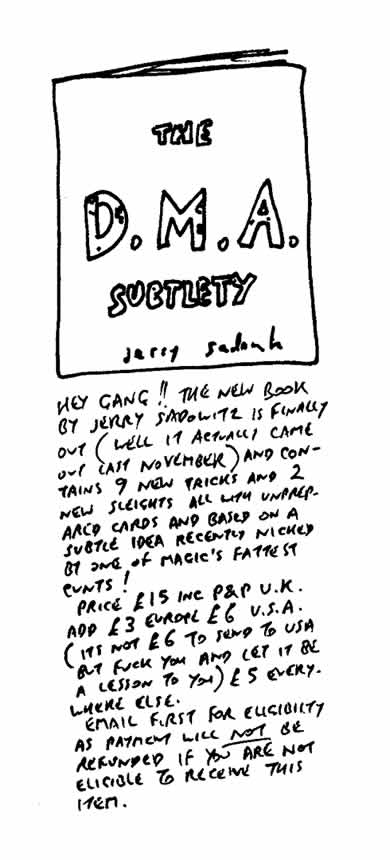 THE
D.M.A.
SUBTLETY
jerry sadowitz
HEY GANG!! THE NEW BOOK
BY JERRY SADOWITZ IS FINALLY
OUT (WELL IT ACTUALLY CAME
OUT LAST NOVEMBER) AND CON-
TAINS 9 NEW TRICKS AND 2
NEW SLEIGHTS ALL WITH UNPREP-
ARED CARDS AND BASED ON A
SUBTLE IDEA RECENTLY NICKED
BY ONE OF MAGIC'S FATTEST
CUNTS!
PRICE £15 INC P&P U.K.
ADD £3 EUROPE £6 U.S.A.
(ITS NOT £6 TO SEND TO USA
BUT FUCK YOU AND LET IT BE
A LESSON TO YOU) £5 EVERY-
WHERE ELSE.
EMAIL FIRST FOR ELIGIBILTY
AS PAYMENT WILL NOT BE
REFUNDED IF YOU ARE NOT
ELIGIBLE TO RECEIVE THIS
ITEM.